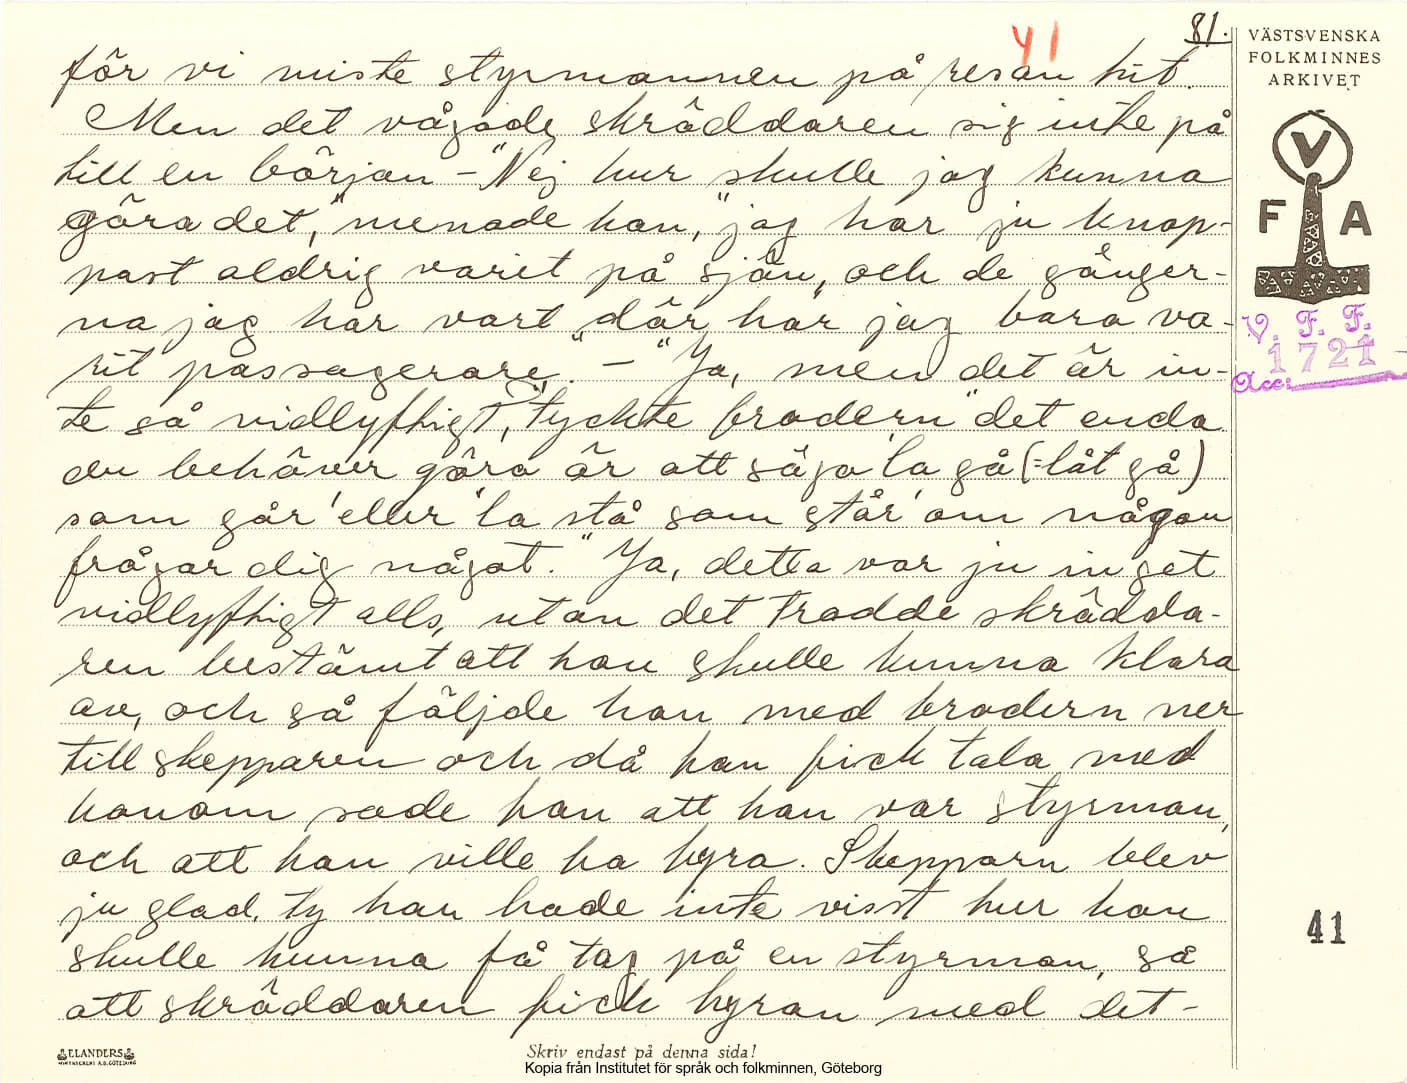 41
81.
för vi miste styrmannen på resan hit.
Men det vågade skräddaren sig inte på
till en början – "Nej hur skulle jag kunna
göra det," menade han, "jag har ju knap-
past aldrig varit på sjön, och de gånger-
na jag har vart där har jag bara va-
rit passagerare." – "Ja, men det är in-
te så vidlyftigt," tyckte brodern, "det enda
du behöver göra är att säga 'la gå (=låt gå)
som går' eller 'la stå som står' om någon
frågar dig något." Ja, detta var ju inget
vidlyftigt alls, utan det trodde skrädda-
ren bestämt att han skulle kunna klara
av, och så följde han med brodern ner
till skepparen och då han fick tala med
honom sade han att han var styrman,
och att han ville ha hyra. Skepparn blev
ju glad, ty han hade inte visst hur han
skulle kunna få tag på en styrman, så
att skräddaren fick hyran med det-
VÄSTSVENSKA
FOLKMINNES
ARKIVET
V
F A
V. F. F.
1721
Acc:
41
ELANDERS
Skriv endast på denna sida!
Kopia från Institutet för språk och folkminnen, Göteborg